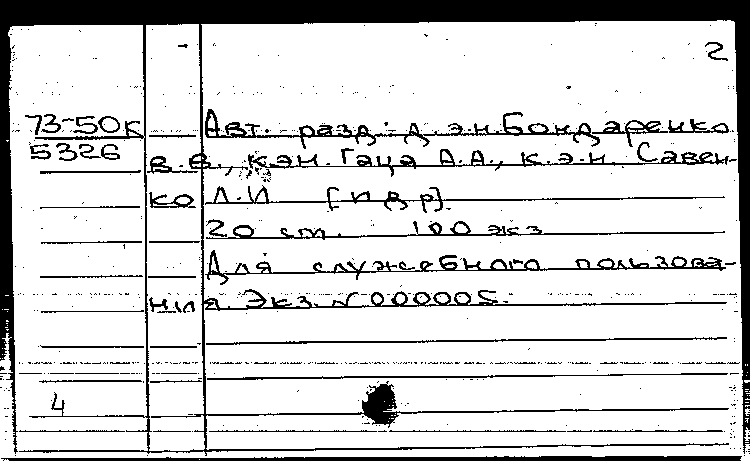 2
73-50к Авт. разд.: д.э.н. Бондаренко
5326 В.В., к.эн. Гаца А.А., к.э.н. Савен-
ко Л.И [и др].
20 cm. 100 экз
Для служебного пользова-
ния. Экз. N 000005.
4